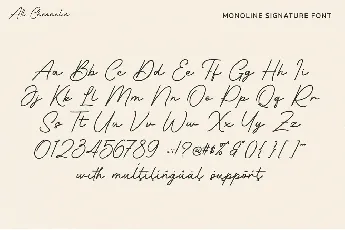 MONOLINE SIGNATURE FONT
Aa Bb Cc Dd Ee Ff Gg Hh Ii
Jj Kk Ll Mm Nn Oo Pp Qq Rr
Ss Tt Uu Vv Ww Xx Yy Zz
0123456789 .:!? @#$% & (){}[]
with multilingual supports